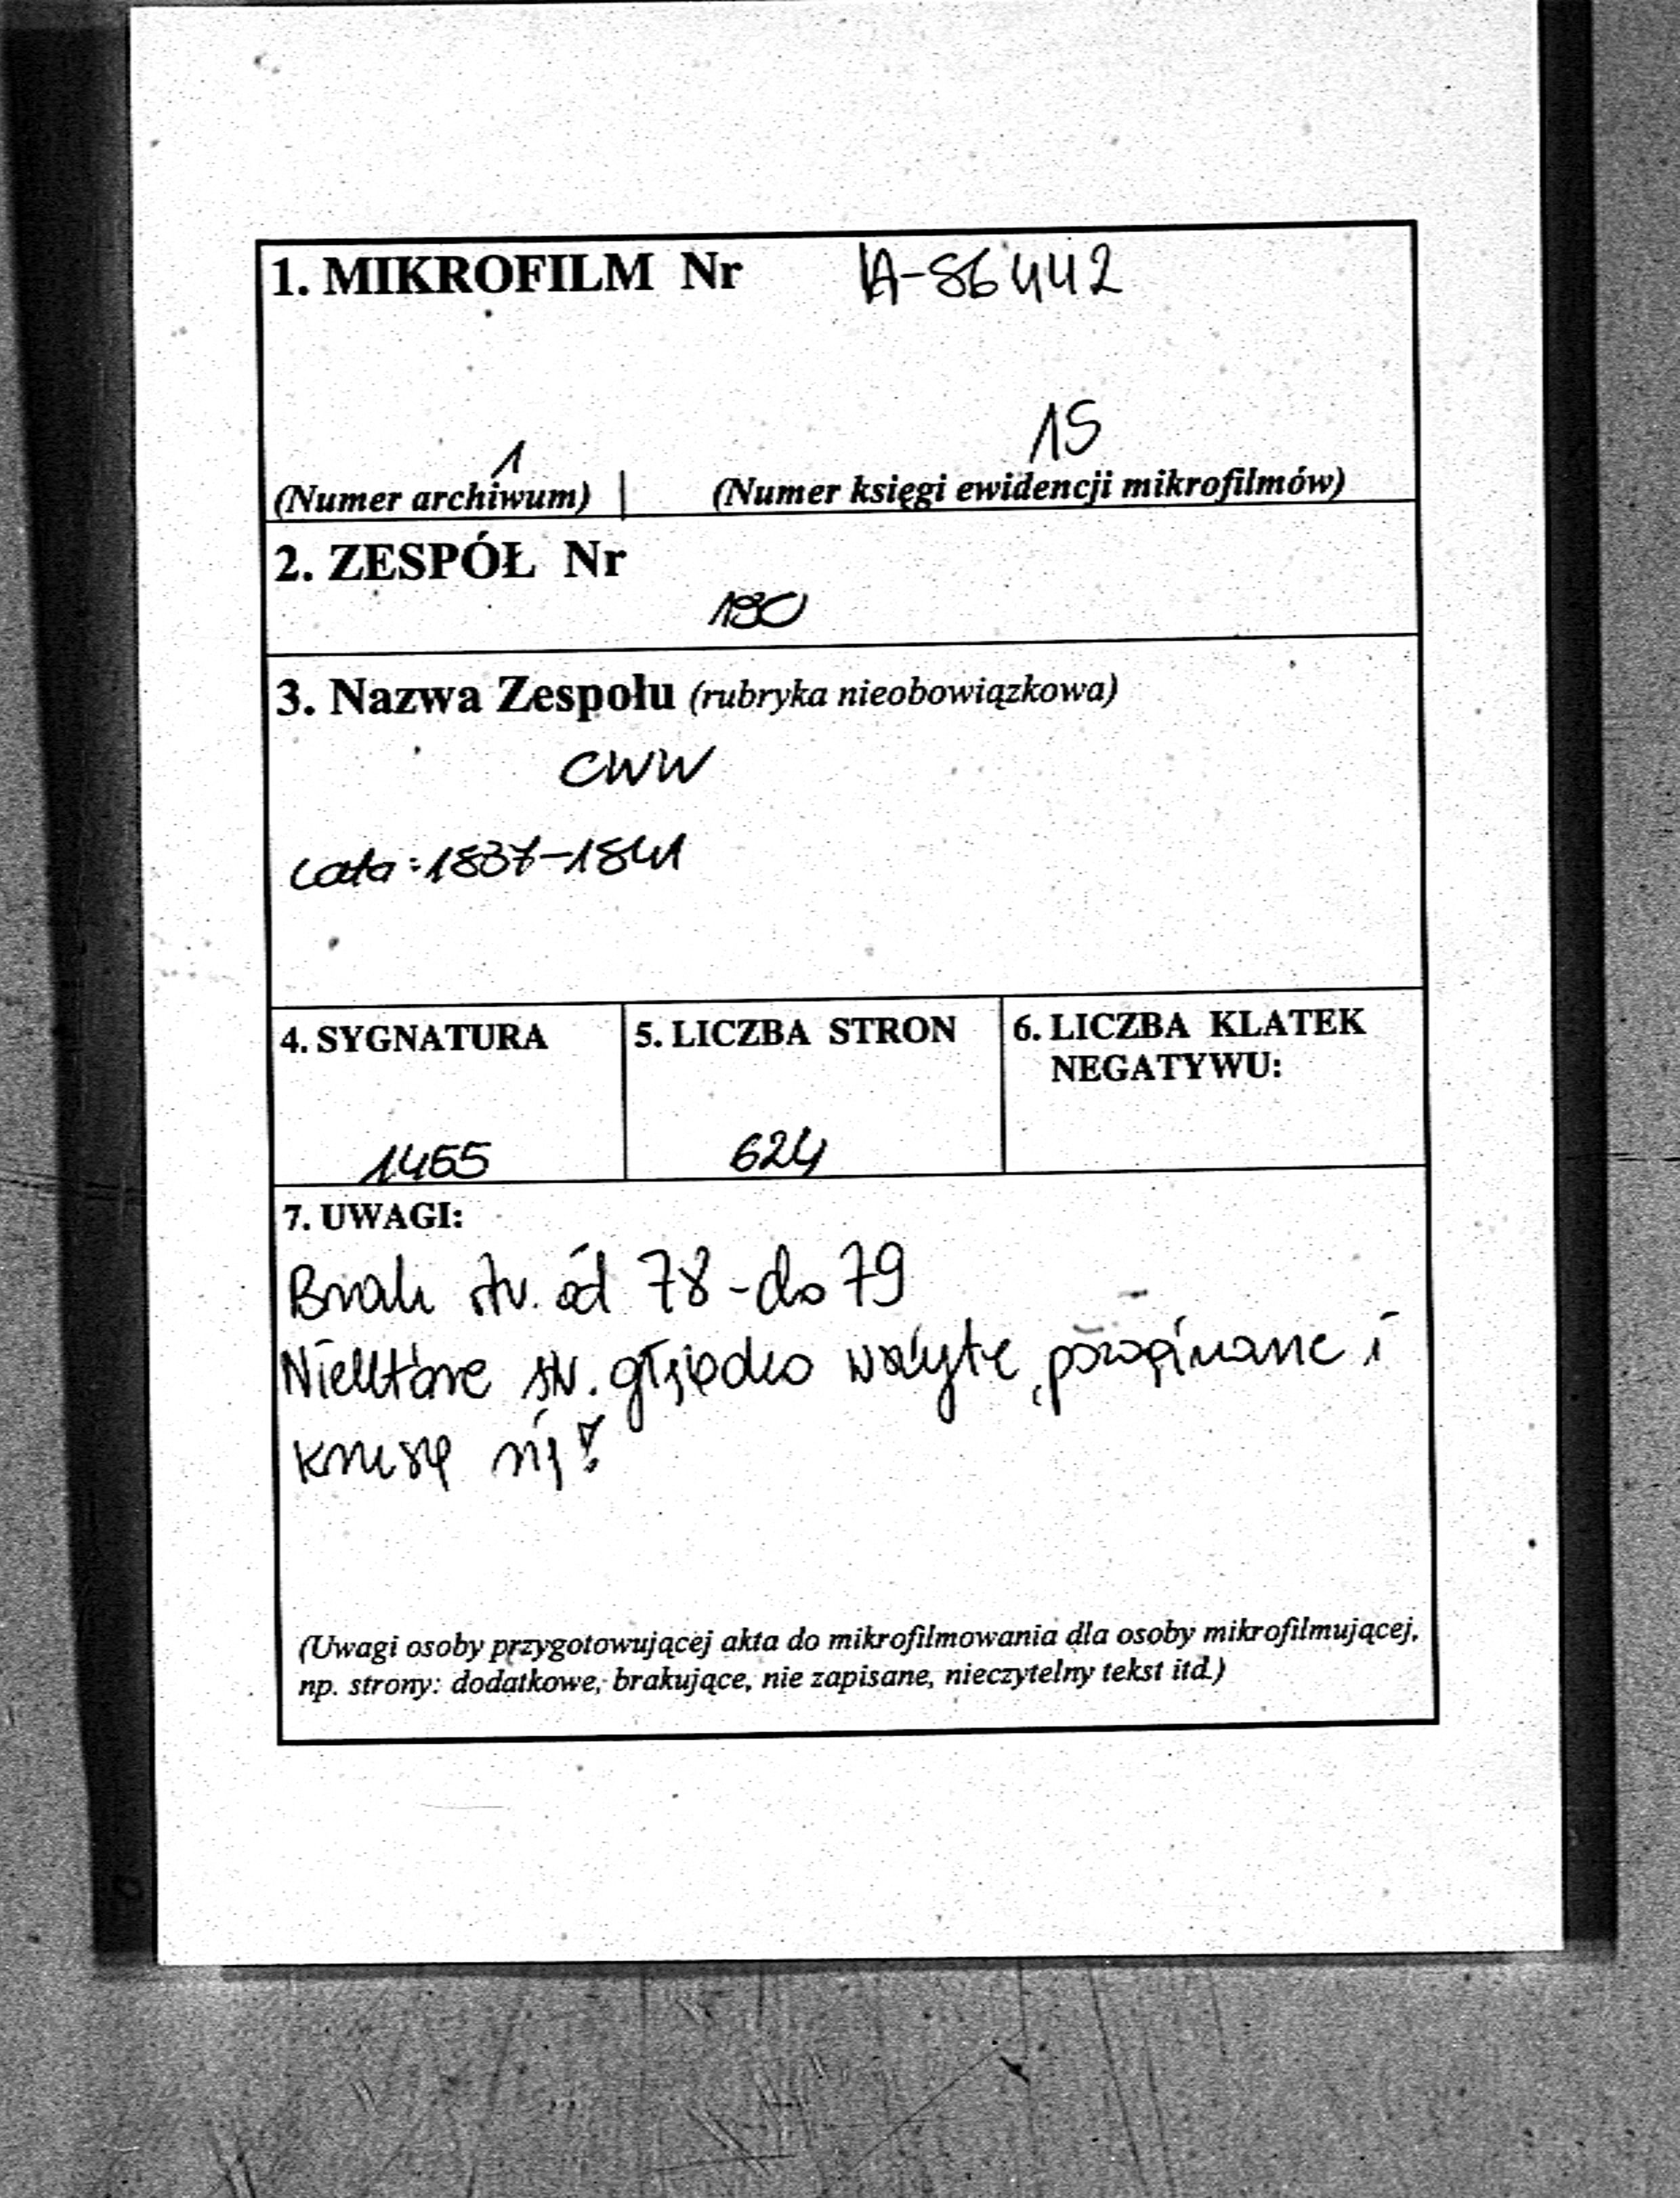 1. MIKROFILM Nr A-86442
1 15
(Numer archiwum) | (Numer księgi ewidencji mikrofilmów)
2. ZESPÓŁ Nr
190
3. Nazwa Zespołu (rubryka nieobowiązkowa)
CWW
Lata: 1837-1841
4. SYGNATURA 5. LICZBA STRON 6. LICZBA KLATEK
NEGATYWU:
1455 624
7. UWAGI:
Brak str. od 78-do 79
Niektóre str. głęboko wszyte, pozaginane i
kruszą się!
(Uwagi osoby przygotowującej akta do mikrofilmowania dla osoby mikrofilmującej,
np. strony: dodatkowe, brakujące, nie zapisane, nieczytelny tekst itd.)